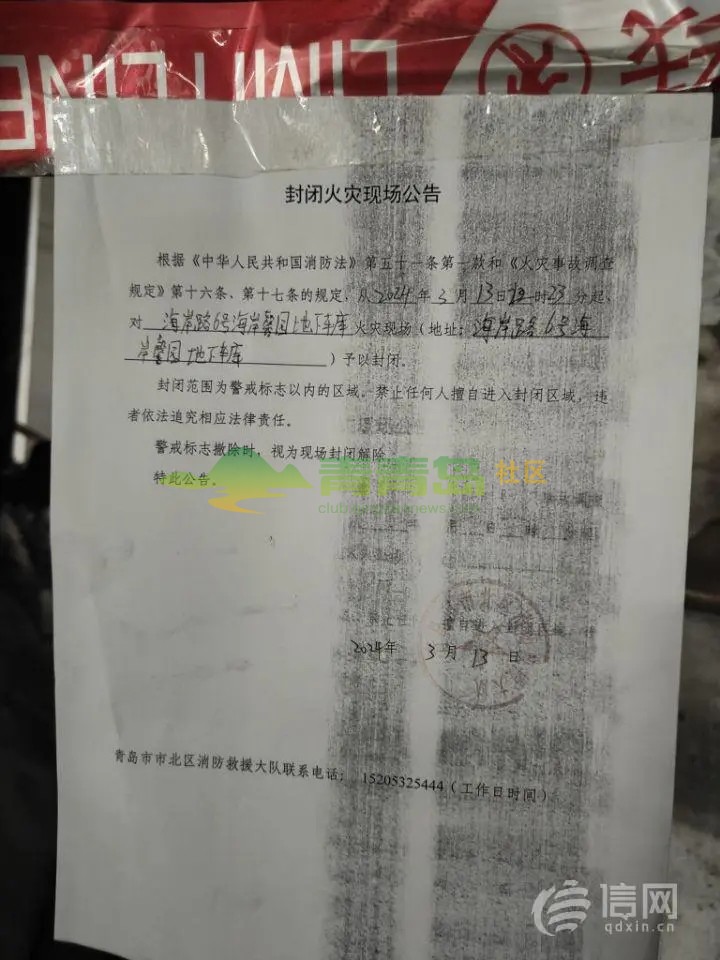 LIMIT LINE
封闭火灾现场公告
根据《中华人民共和国消防法》第五十一条第一款和《火灾事故调查
规定》第十六条、第十七条的规定，从2024年3月13日12时23分起，
对 海岸路6号海岸馨园地下车库火灾现场（地址：海岸路6号海
岸馨园地下车库）予以封闭。
封闭范围为警戒标志以内的区域。禁止任何人擅自进入封闭区域，违
者依法追究相应法律责任。
警戒标志撤除时，视为现场封闭解除。
特此公告。
青青岛社区
club.qingdaonews.com
月 日 时 分起
禁止任 擅自进入封闭区域，
2024年 3月13日
青岛市市北区消防救援大队联系电话：15205325444（工作日时间）
信网
qdxin.cn